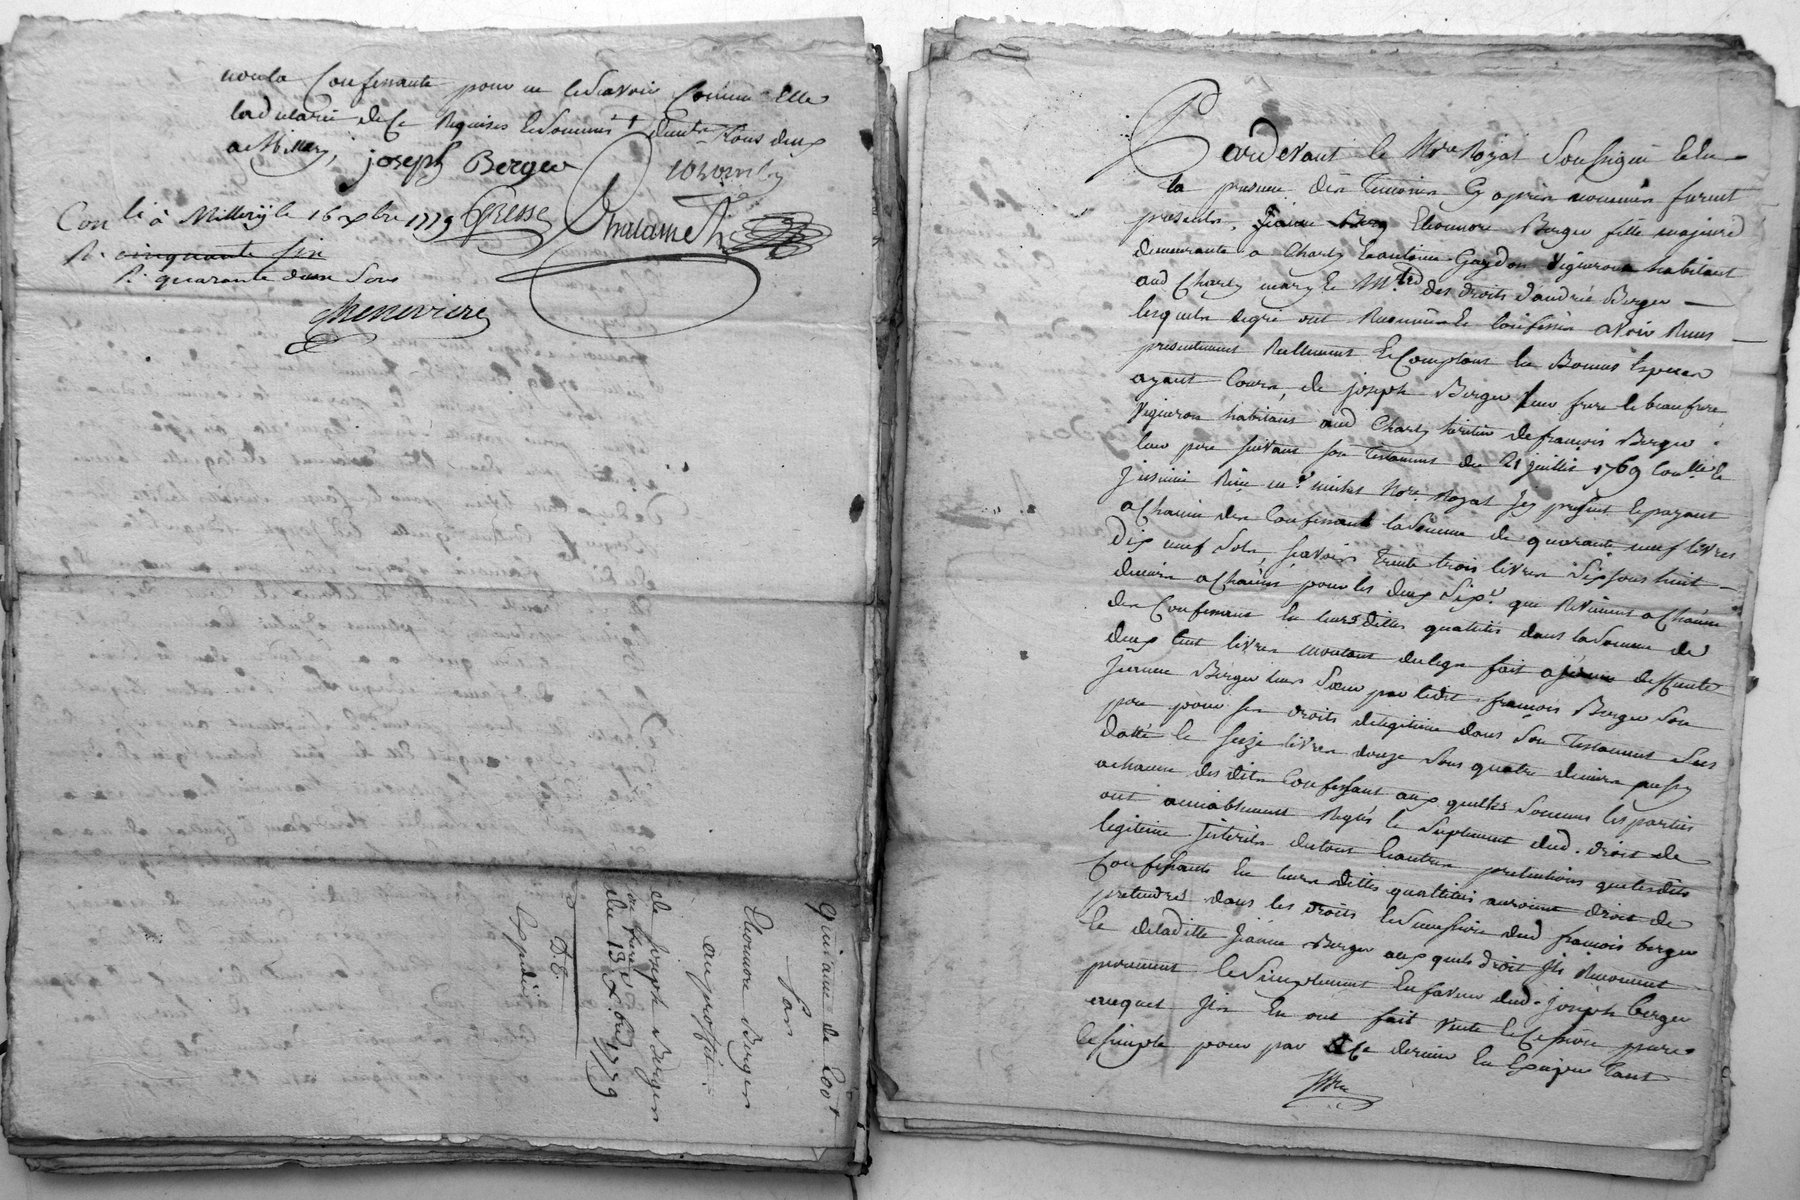 non la Confessante pour ne le Scavoir Comme Elle
la declaré de ce Requises
a Millery, joseph Berger
Gresse Chalamel
Con. lé à Millery le 16 xbre 1779
R. cinquante six
R. quarante deux Sous
Chenevriere
quittance de 200lt
par
Eleonore Berger
au proffit
de joseph Berger
son frere
du 13 xbre 1779
D.E.
Expedié
Pardevant le Nre Royal Soussigné Et En
la presence des Temoins Cy apres nommés furent
presents, Eleonore Berger fille majeure
demeurante a Charly Et antoine Gaydon Vigneron habitant
aud Charly mary Et Mtre des droits d'andrée Berger
lesquels de gré ont Reconnu Et Confessé avoir Reçus
presentement Reellement Et Comptant En Bonnes Especes
ayant Cours, de joseph Berger leur frere Et beaufrere,
Vigneron habitant aud Charly heritier de françois Berger
leur pere suivant son Testament du 21 juillet 1769 Conllé Et
Insinué Reçu Nore Royal Icy present Et payant
a Chacun des Confessant la Somme de quarante neuf livres
Dix neuf Sols, Scavoir Trente trois livres Six sous huit
deniers a Chacuns pour les deux Sixe. qui Reviennent a Chacun
des Confessant En leurs dittes qualités dans la Somme de
deux Cent livres montant du legs fait a deffunte
Jeanne Berger leur Sœur par ledit françois Berger Son
pere pour Ses droits de legitime dans Son Testament Sus
datté Et Seize livres douze Sous quatre deniers aussy
a chacun desdits Confessant aux quelles Sommes les parties
ont amiablement Reglés le Suplement dud. droit de
legitime Interets du tout Et autres pretentions que lesdits
Confessants En leurs dittes qualittés auroient droit de
pretendre dans les droits Et Succession dud françois berger
Et de laditte Jeanne Berger aux quels droit Ils Renoncent
purement Et Simplement En faveur dud. joseph berger
auquel Ils En ont fait Vente Et Cession pure
Et Simple pour par Ce dernier En Exiger tant